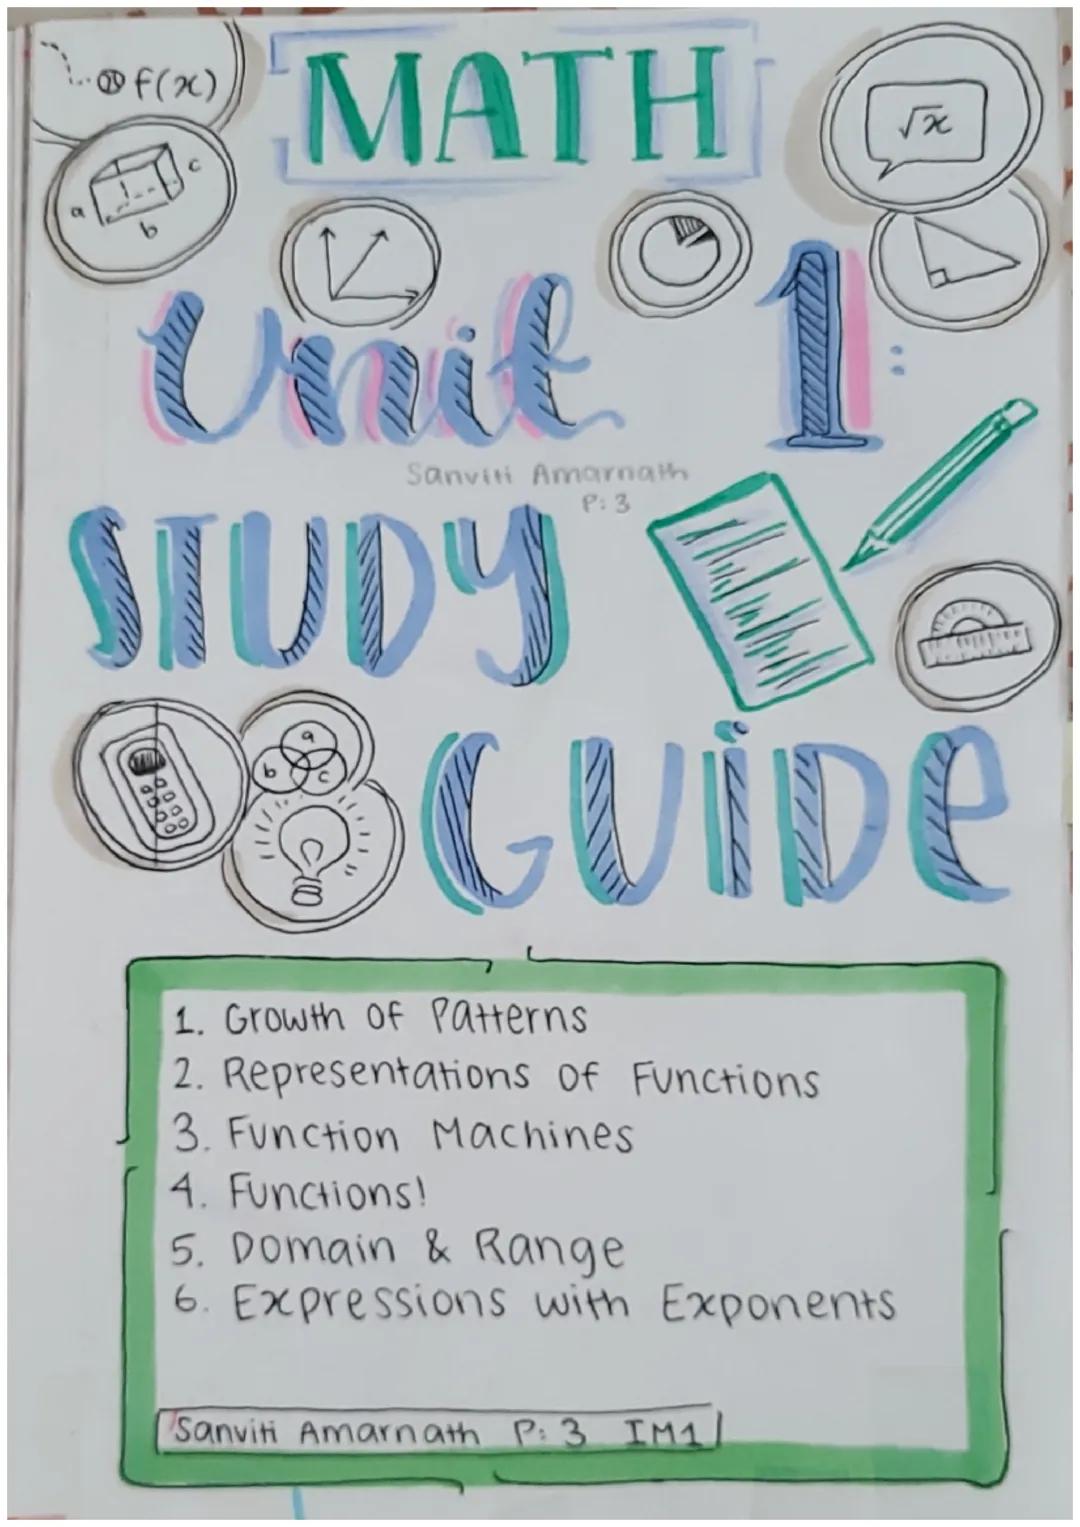 f(x)
MATH
√x
a
b
c
Unit 1:
Sanviti Amarnath
P: 3
STUDY
GUIDE
a
b
c
1. Growth of Patterns
2. Representations of Functions
3. Function Machines
4. Functions!
5. Domain & Range
6. Expressions with Exponents
Sanviti Amarnath P: 3 IM1